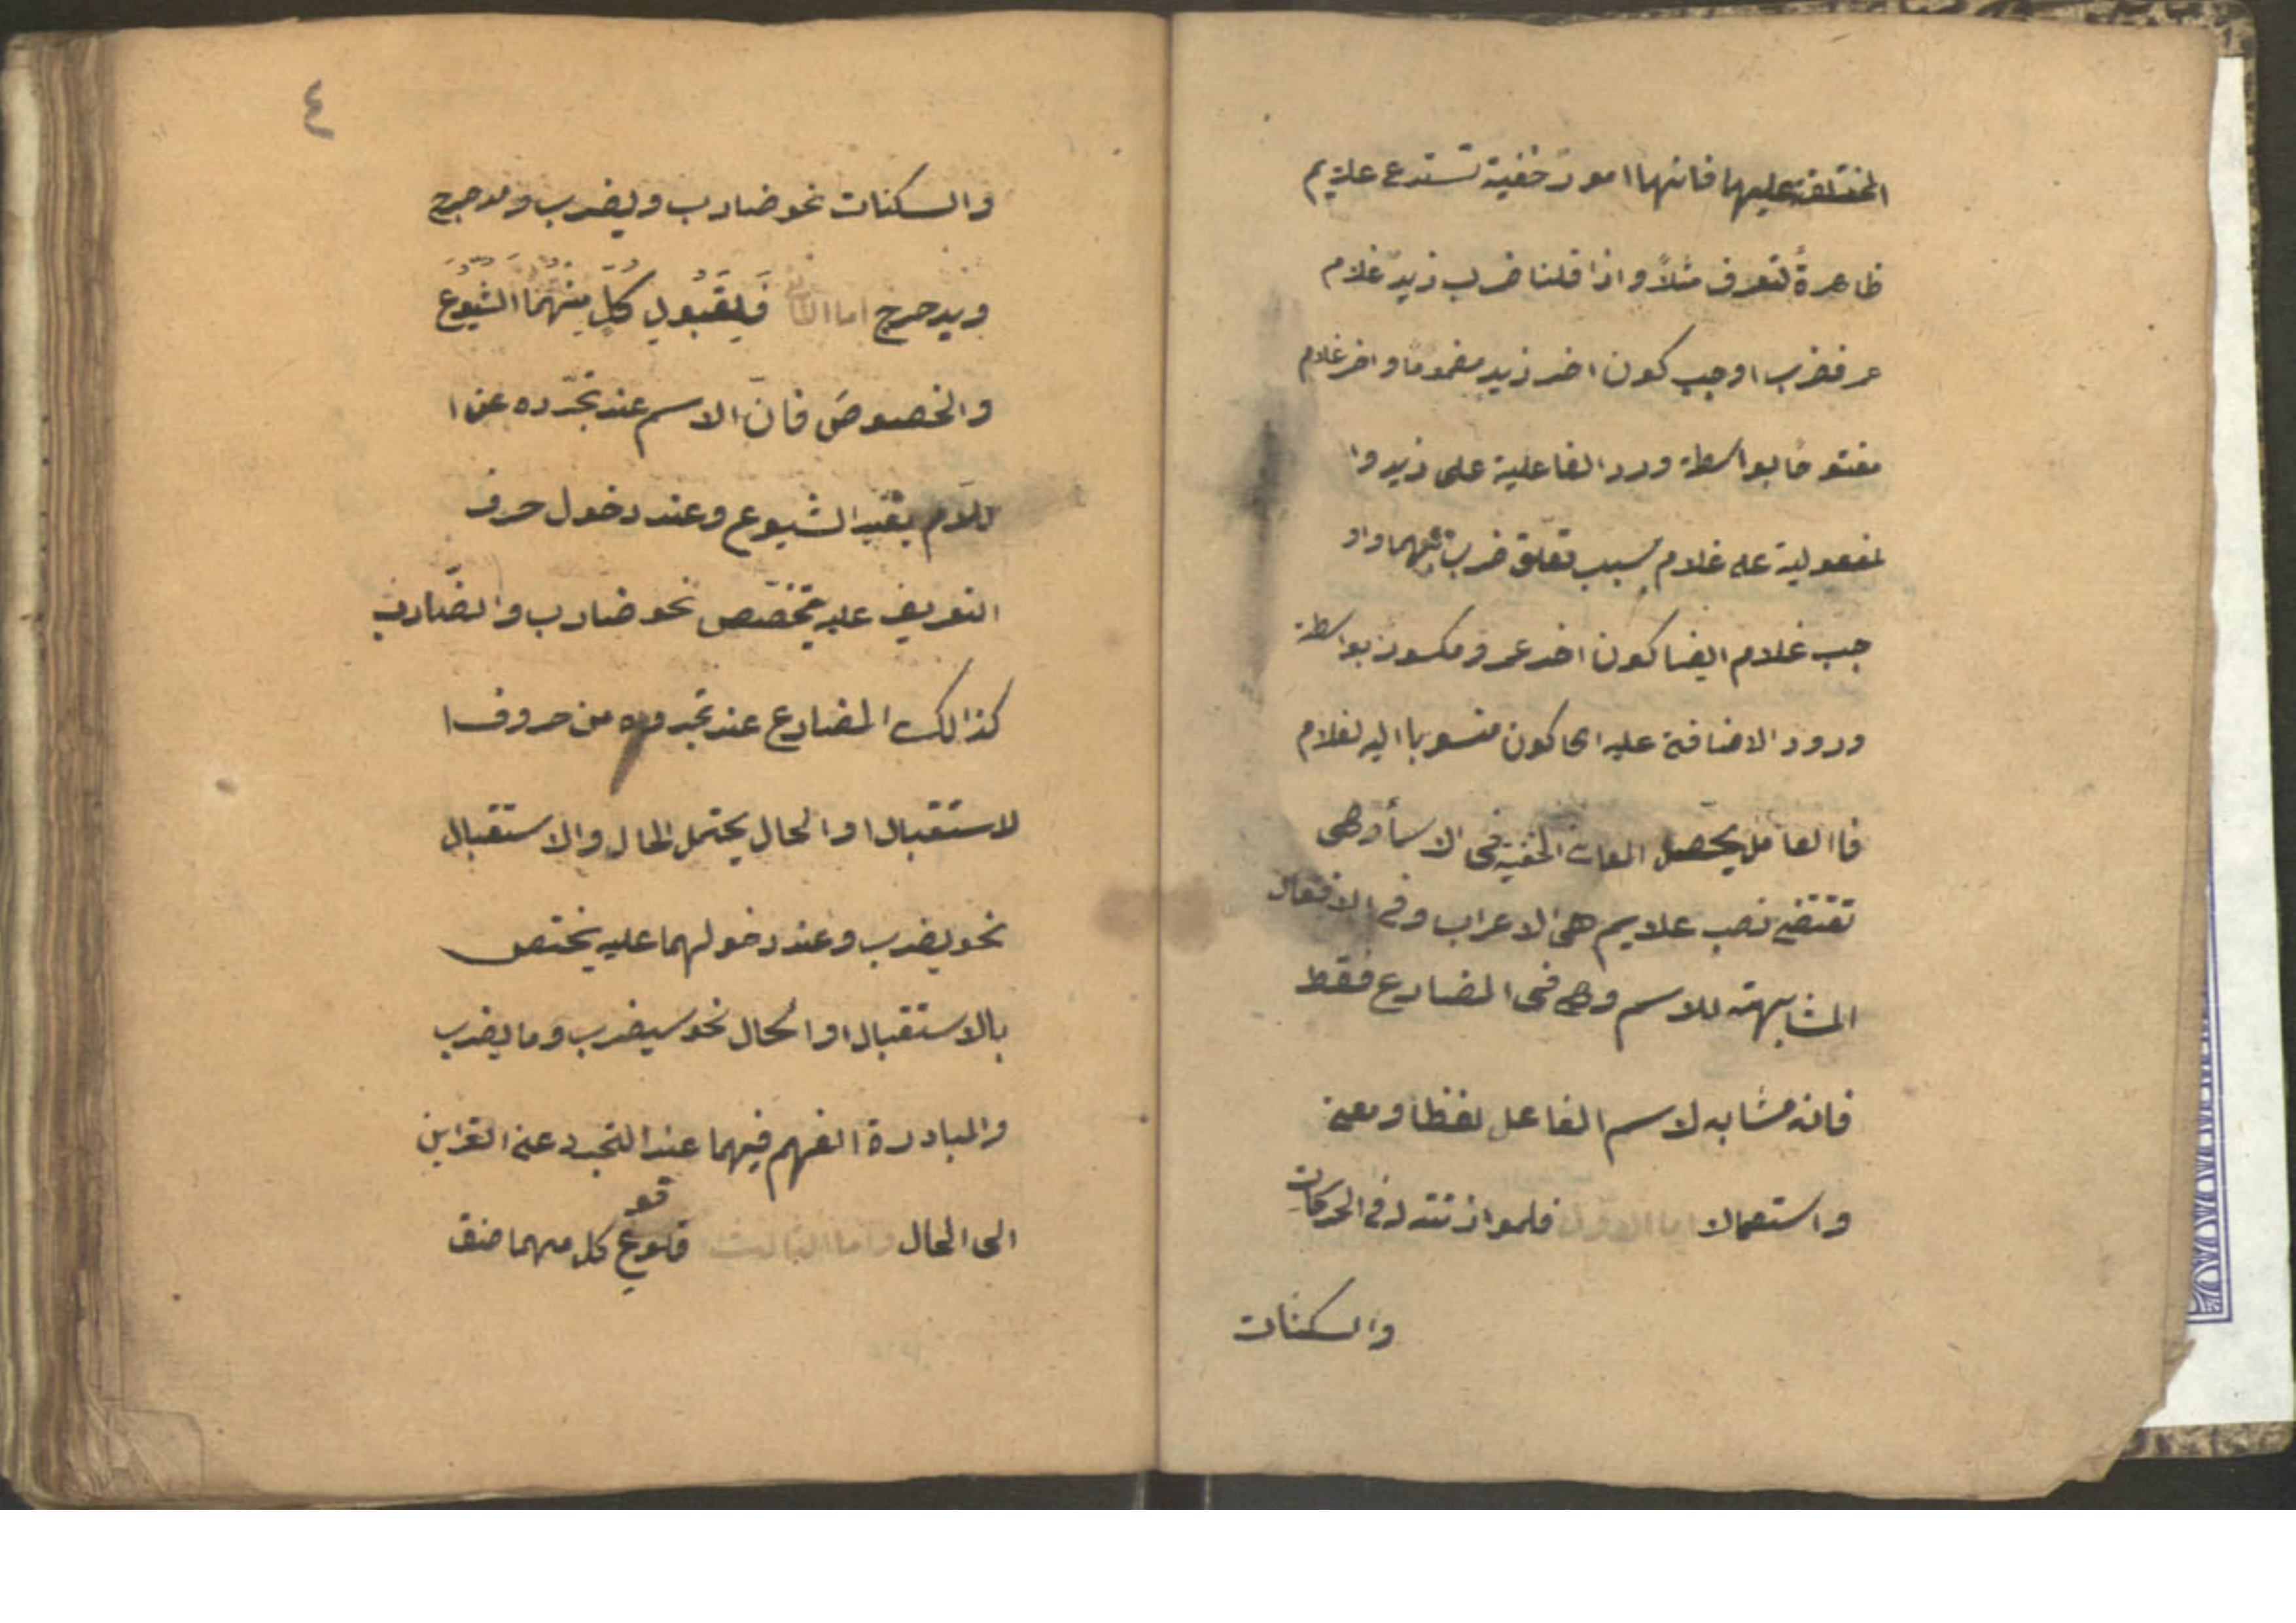 المختلفة عليها فانها امور خفية تستدع علايم
ظاهرة لتعرف مثلاً واذا قلنا ضرب زيد غلام
عمر فضرب اوجب كون اخر زيد مضموما واخر غلام
مفتوحا بواسطة ورد الفاعلية على زيد وا
لمفعولية على غلام بسبب تعلق ضرب بهما واو
جب غلام ايضا كون اخر عمرو مكسور بواسطة
ورود الاضافة عليه اى كون منسوبا اليه لغلام
فاالعامل يحصل المعان الخفية فى الاسمأ وهى
تقتضى نصب علايم هى الاعراب وفى الافعال
المشابهة للاسم وهى فى المضارع فقط
فانه مشابه لاسم الفاعل لفظا ومعنى
واستعمالا اما الاول فلموازنته له فى الحركات
والسكنات
٤
والسكنات نحو ضارب ويضرب ومدحرج
ويدحرج اما الثانى فَلِقَبُولِ كُلٍّ مِنْهُمَا الشُّيُوعَ
والخصوصَ فانّ الاسم عند تجرّده عن ا
للام يفيد الشيوع وعند دخول حرف
التعريف عليه يتخصّص نحو ضارب والضّارب
كذالك المضارع عند تجرده من حروف ا
لاستقبال او الحال يحتمل الحال والاستقبال
نحو يضرب وعند دخولهما عليه يختص
بالاستقبال او الحال نحو سيضرب وما يضرب
والمبادرة الفهم فيهما عند التجرد عن القراين
الى الحال واما الثالث فلوقوع كل منهما صفة